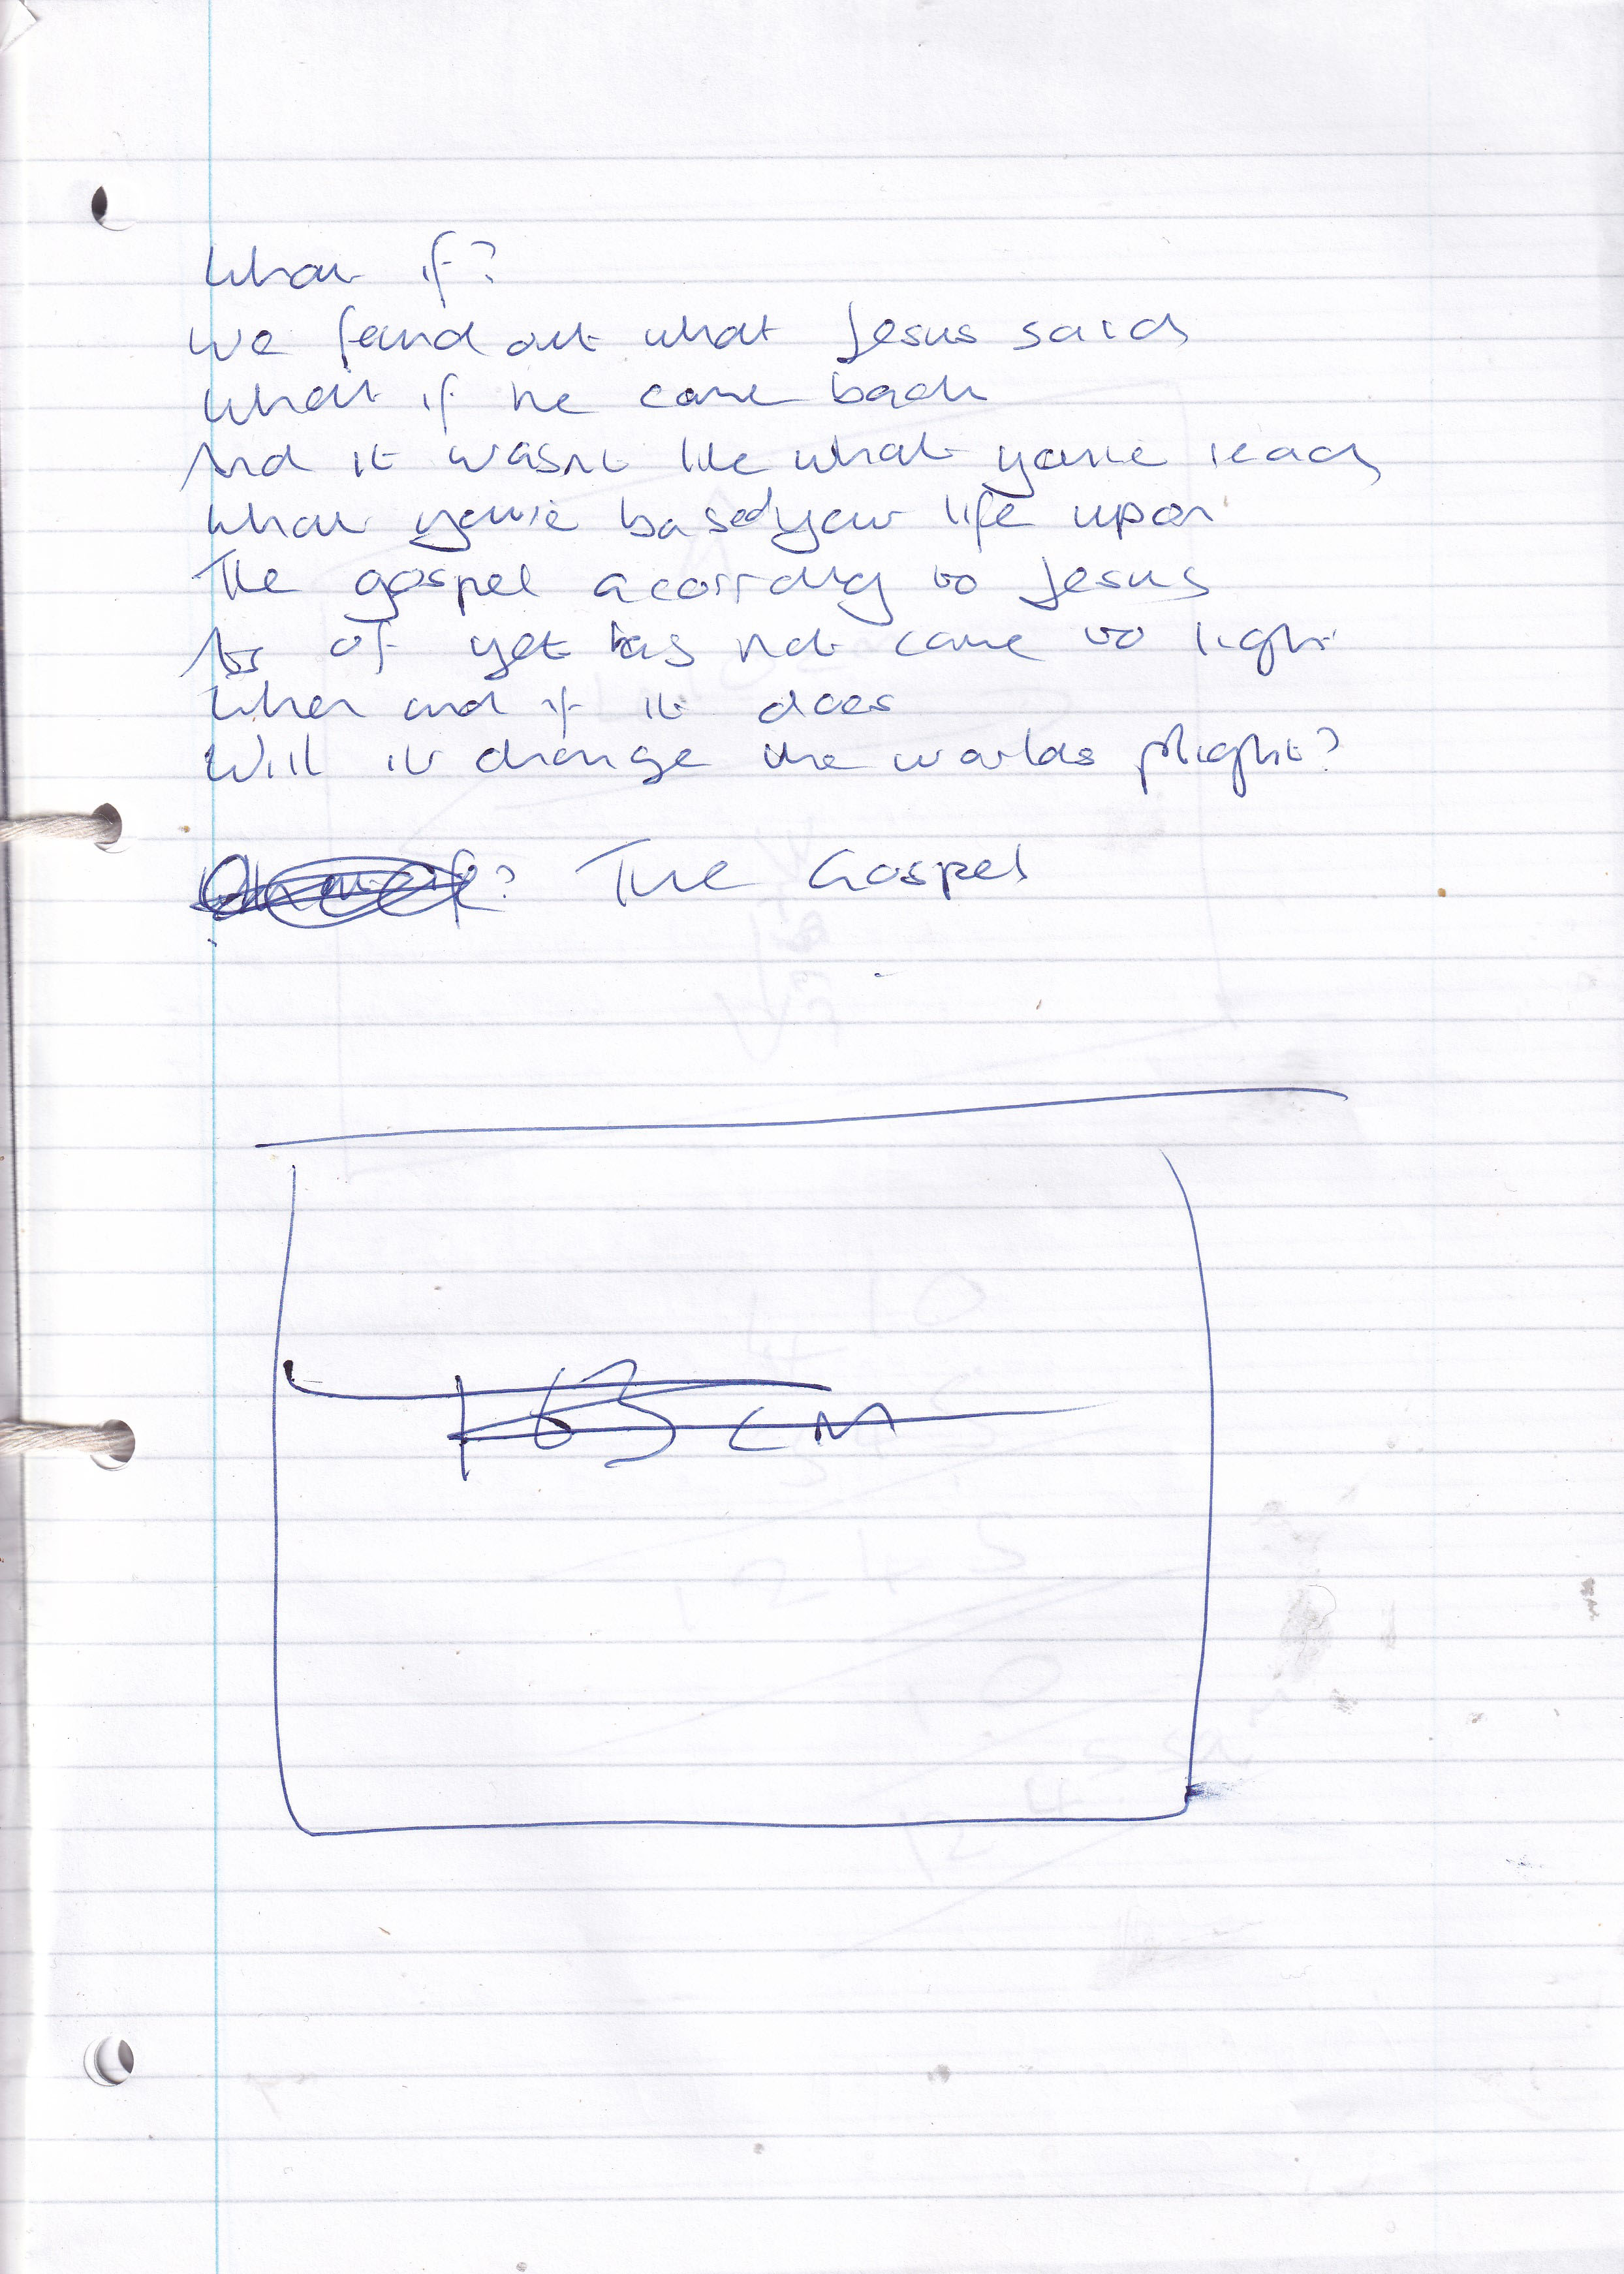 What if?
We found out what Jesus said
What if he came back
And it wasnt like what youve read
What youve based your life upon
The gospel according to Jesus
As of yet has not came to light
When and if it does
Will it change the worlds plight?
What if? The Gospel
163 cm